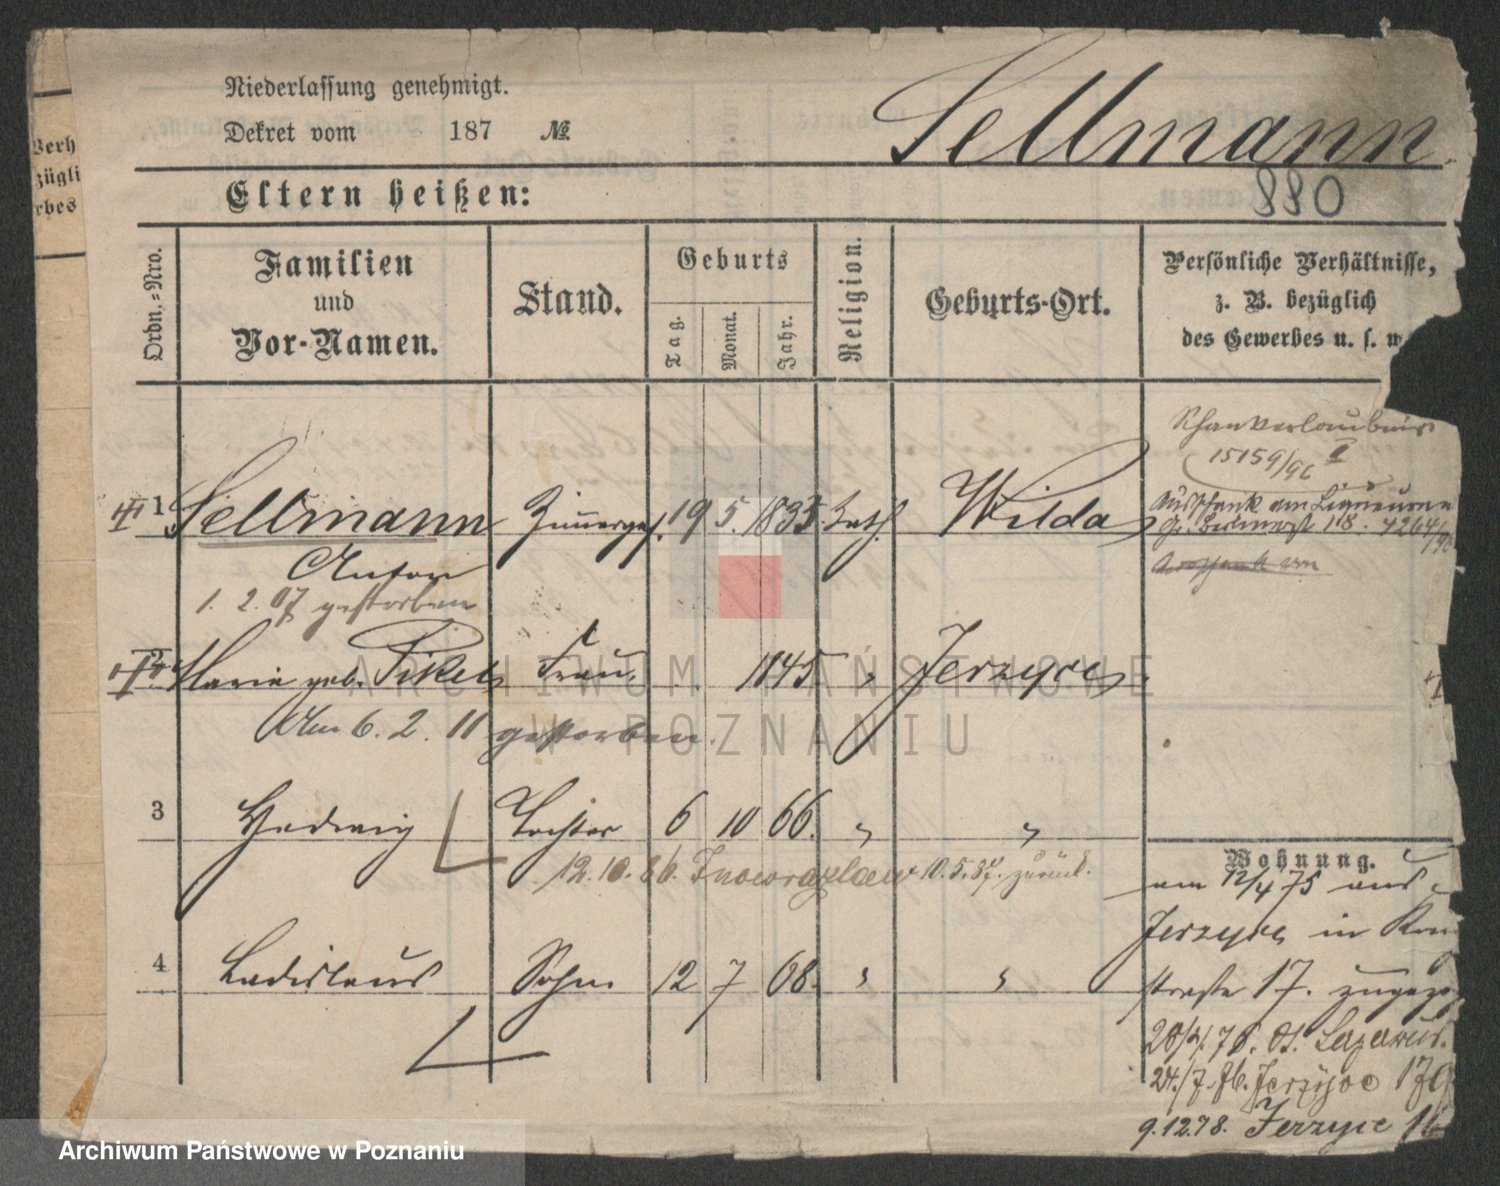 Niederlassung genehmigt.
Dekret vom 187 №
Sellmann
880
Eltern heißen:
Ordn.-Nro.
Familien
und
Vor-Namen.
Stand.
Geburts
Tag.
Monat.
Jahr.
Religion.
Geburts-Ort.
Persönliche Verhältnisse,
z. B. bezüglich
des Gewerbes u. s. w
Verh
zügli
rbes
Schankerlaubnis
15159/96 II
1 Sellmann Zimmerges. 19 5. 1835. kath. Wilda
Ausschank am Liqueuren
18. 7264/96
Ausschank von
Anton
1. 2. 07 gestorben
2 Maria geb. Pikel Frau 1845 " Jerzyce
Am 6. 2. 11 gestorben.
3 Hedwig Tochter 6 10 66. " "
12. 10. 86. Inowrazlaw 10. 5. 87. zurück.
4 Ladislaus Sohn 12 7 68. " "
Wohnung.
am 12/4 75 aus
Jerzyce in
straße 17. zugezo
20/4. 76. St. Lazarus.
24./7. 76. Jerzyce 179
9.12.78. Jerzyce
ARCHIWUM PAŃSTWOWE
W POZNANIU
Archiwum Państwowe w Poznaniu